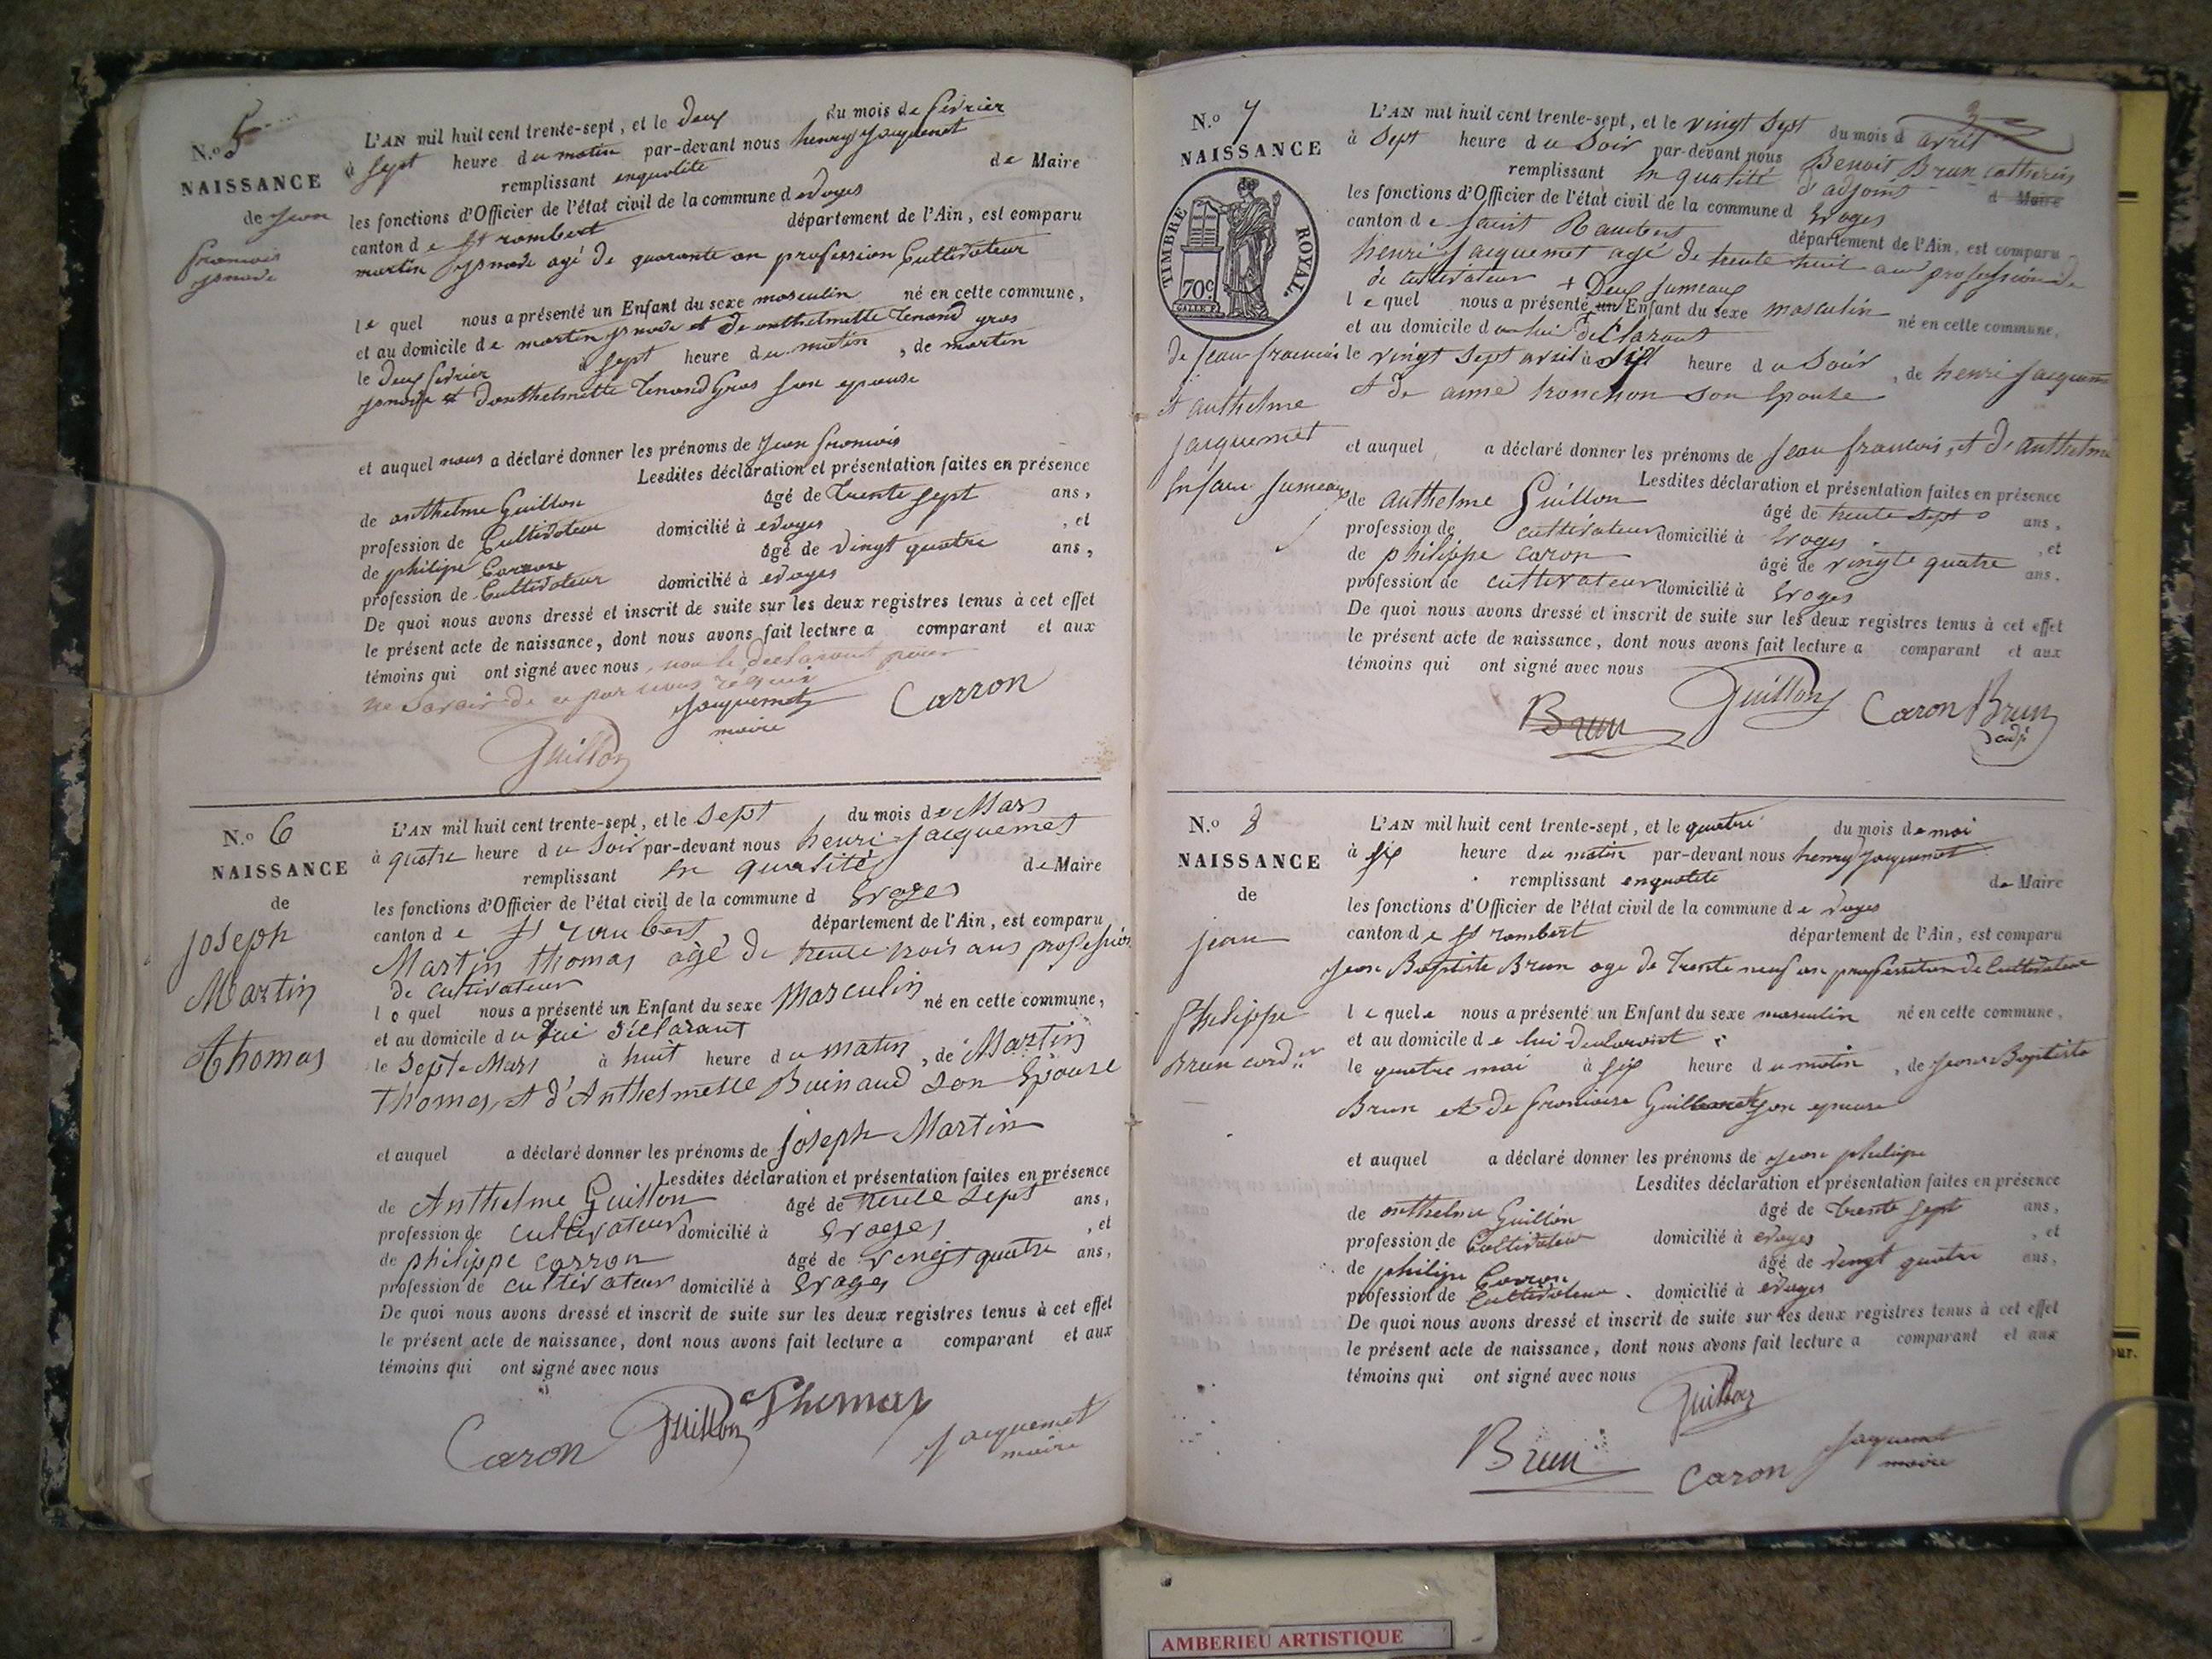 N.o 5
NAISSANCE
de Jean
francois
L'AN mil huit cent trente-sept, et le deux du mois de fevrier
à sept heure du matin par-devant nous henry Jacquemet
remplissant enqualité de Maire
les fonctions d'Officier de l'état civil de la commune d evoges
canton de St rambert département de l'Ain, est comparu
martin agé de quarante an profession Cultivateur
le quel nous a présenté un Enfant du sexe masculin né en cette commune,
et au domicile de martin et de anthelmette Tenand gros
le deux fevrier à sept heure du matin, de martin
et danthelmette Tenand Gros son epouse
et auquel nous a déclaré donner les prénoms de Jean francois
Lesdites déclaration et présentation faites en présence
de anthelme Guillon âgé de trente sept ans,
profession de Cultivateur domicilié à evoges, et
de philipe Carron âgé de vingt quatre ans,
profession de Cultivateur domicilié à evoges
De quoi nous avons dressé et inscrit de suite sur les deux registres tenus à cet effet
le présent acte de naissance, dont nous avons fait lecture a comparant et aux
témoins qui ont signé avec nous, non le declarant pour
ne savoir de ce par nous requis
Jacquemet Carron
maire
Guillon
N.o 6
NAISSANCE
de
joseph
Martin
Thomas
L'AN mil huit cent trente-sept, et le sept du mois de Mars
à quatre heure du soir par-devant nous henri Jacquemet
remplissant en qualité de Maire
les fonctions d'Officier de l'état civil de la commune d Evoges
canton de St rambert, département de l'Ain, est comparu
Martin thomas agé de trente trois ans profession
de cultivateur
le quel nous a présenté un Enfant du sexe Masculin né en cette commune,
et au domicile du lui déclarant
le sept Mars à huit heure du matin, de Martin
Thomas, et d'Anthelmette Buinaud son Epouse
et auquel a déclaré donner les prénoms de joseph Martin
Lesdites déclaration et présentation faites en présence
de Anthelme Guillon âgé de trente sept ans,
profession de cultivateur domicilié à Evoges, et
de philippe carron âgé de vingt quatre ans,
profession de cultivateur domicilié à Evoges
De quoi nous avons dressé et inscrit de suite sur les deux registres tenus à cet effet
le présent acte de naissance, dont nous avons fait lecture a comparant et aux
témoins qui ont signé avec nous
Caron Guillon Thomas Jacquemet
maire
3
N.o 7
NAISSANCE
TIMBRE ROYAL.
70c
de jean francois
et anthelme
jacquemet
Enfans jumeaux
L'AN mil huit cent trente-sept, et le vingt sept du mois d avril
à sept heure du soir par-devant nous Benoit Brun catherin
remplissant en qualité d'adjoint d Maire
les fonctions d'Officier de l'état civil de la commune d Evoges
canton de saint Rambert département de l'Ain, est comparu
henri jacquemet agé de trente huit ans profession de
de cultivateur + Deux jumeaux
le quel nous a présenté un Enfant du sexe masculin né en cette commune,
et au domicile du lui declarant
le vingt sept avril à six heure du soir, de henri jacquemet
et de anne tronchon son epouse
et auquel a déclaré donner les prénoms de jean francois, et d'anthelme
Lesdites déclaration et présentation faites en présence
de anthelme Guillon âgé de trente sept ans,
profession de cultivateur domicilié à Evoges, et
de philippe caron âgé de vingte quatre ans,
profession de cultivateur domicilié à Evoges
De quoi nous avons dressé et inscrit de suite sur les deux registres tenus à cet effet
le présent acte de naissance, dont nous avons fait lecture a comparant et aux
témoins qui ont signé avec nous
Brun Guillon Caron Brun
adj
N.o 8
NAISSANCE
de
jean
Philippe
Brun
L'AN mil huit cent trente-sept, et le quatre du mois de mai
à six heure du matin par-devant nous henry Jacquemet
remplissant enqualité de Maire
les fonctions d'Officier de l'état civil de la commune de voges
canton de St rambert département de l'Ain, est comparu
Jean Baptiste Brun age de trente neuf an profession de Cultivateur
le quele nous a présenté un Enfant du sexe masculin né en cette commune,
et au domicile de lui declarant
le quatre mai à six heure du matin, de Jean Baptiste
Brun et de francoise son epouse
et auquel a déclaré donner les prénoms de Jean philipe
Lesdites déclaration et présentation faites en présence
de anthelme Guillon âgé de trente sept ans,
profession de Cultivateur domicilié à evoges, et
de philipe Carron âgé de vingt quatre ans,
profession de Cultivateur domicilié à evoges
De quoi nous avons dressé et inscrit de suite sur les deux registres tenus à cet effet
le présent acte de naissance, dont nous avons fait lecture a comparant et aux
témoins qui ont signé avec nous
Guillon
Brun Caron Jacquemet
maire
AMBERIEU ARTISTIQUE